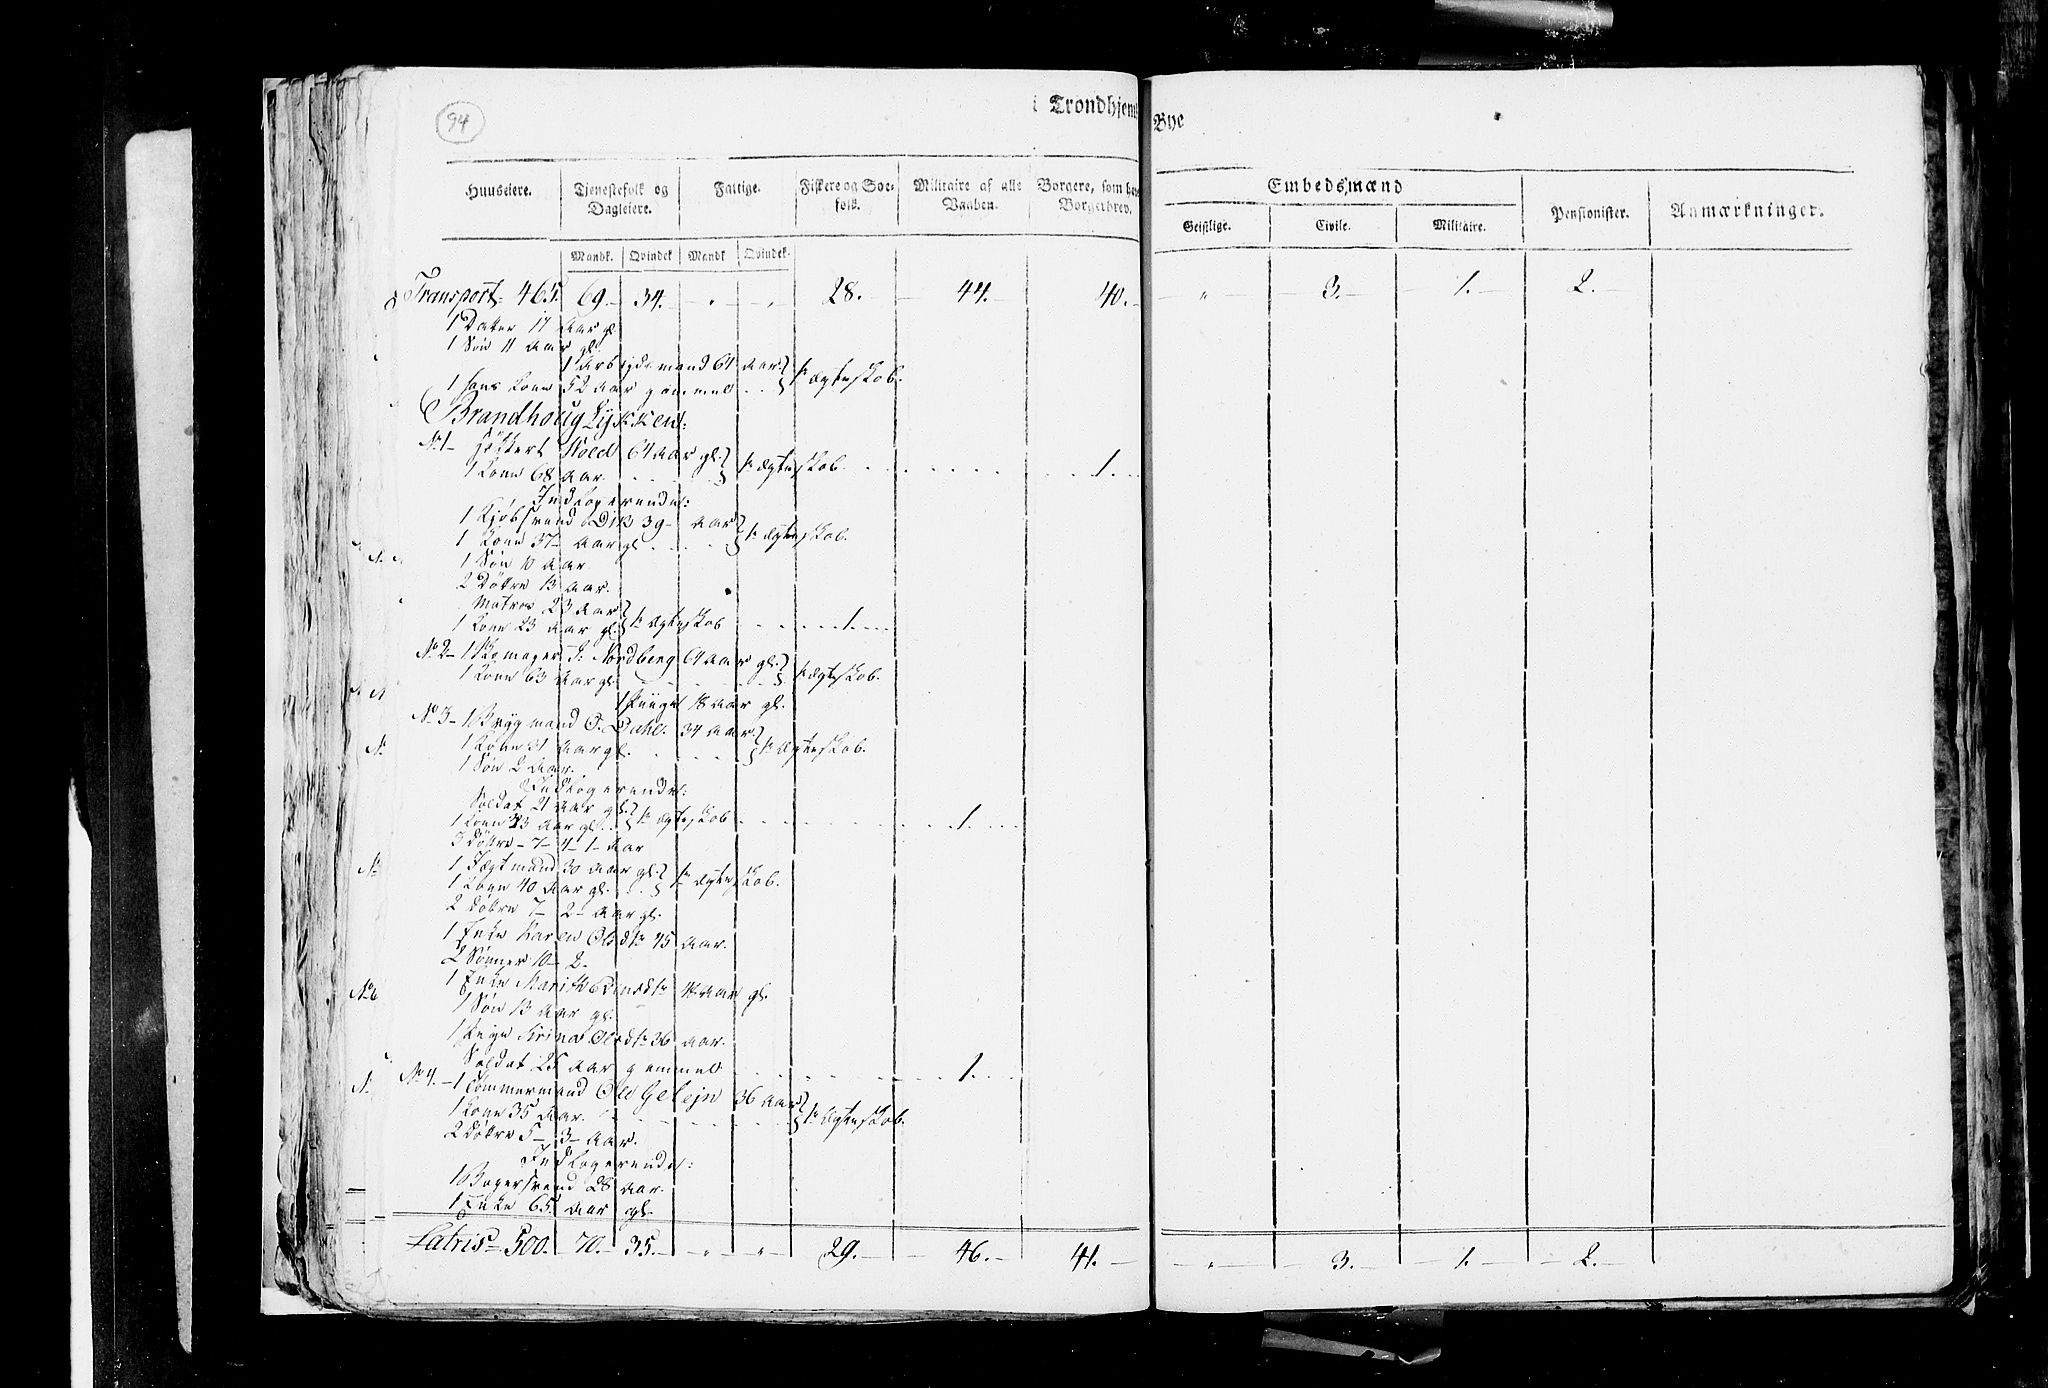 94
i Trondhjems Bye
Huuseiere. Tjenestefolk og Dagleiere. Fattige. Fiskere og Søefolk. Militaire af alle Vaaben. Borgere, som have Borgerbrev. Embedsmænd Pensionister. Anmærkninger.
Geistlige. Civile. Militaire.
Mandk. Qvindek Mandk Qvindek.
Transport: 465. 69. 34. " " 28. 44. 40. " 3. 1. 2.
1 Datter 17 Aar gl.
1 Søn 11 Aar gl.
1 Arbeydsmand 64 Aar } 1te Ægteskab.
1 hans Kone 52 Aar gammel
Brandhoug Lykken:
No 1 Høkkert Wold 64 Aar gl. } 1te Ægteskab. 1.
1 Kone 68 Aar.
Indlogerende:
1 Kjøbsvend Dik 39 Aar } 1te Ægteskab.
1 Kone 37 Aar gl
1 Søn 10 Aar
2 Døttre 13 Aar.
Matros 23 Aar } 1te Ægteskab 1.
1 Kone 23 Aar gl.
No 2 1 J: Nordberg 64 Aar gl. } 1te Ægteskab.
1 Kone 63 Aar gl.
1 Piige 18 Aar gl.
No 3 1 Brygmand O. Dahl. 34 Aar. } 1te Ægteskab.
1 Kone 31 Aar gl.
1 Søn 2 Aar.
Indlogerende:
Soldat 21 Aar gl. } 1te Ægteskab 1.
1 Kone 23 Aar gl.
3 Døttre 7 4 1 Aar
1 Jægtmand 30 Aar gl. } 1te Ægteskab.
1 Kone 40 Aar gl.
2 Døttre 7 2 Aar gl.
1 Enke Karen Olsdtr 45 Aar.
2 Sønner 10 2.
1 Enke Marith Aar gl.
1 Søn 13 Aar gl.
1 Pige Olsdtr 36 Aar.
Soldat 25 Aar gammel 1.
No 4. 1 Tømmermand Ole Gelejn 36 Aar } 1te Ægteskab.
1 Kone 35 Aar.
2 Døttre 5 3 Aar.
Indlogerende:
1 Bagersvend 28 Aar.
1 Enke 65 Aar gl.
Latris 500. 70. 35. " " 29. 46. 41. " 3. 1. 2.